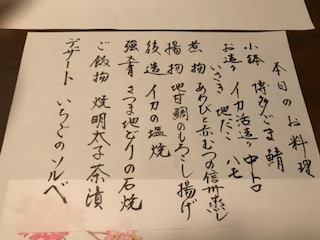 本日のお料理
小鉢 博多ごま鯖
お造り イカ活造り 中トロ
いさき 地だこ ハモ
煮物 あわびと赤むつの信州蒸し
揚物 地甘鯛のもろこし揚げ
後造 イカの塩焼
強肴 さつま地どりの石焼
ご飯物 焼明太子茶漬
デザート いちごのソルベ